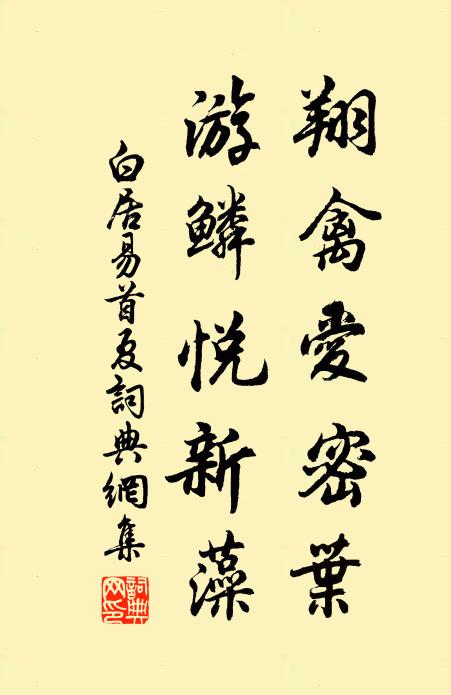 翔禽愛密葉
游鱗悅新藻
白居易首夏詞典網集
詞典網印